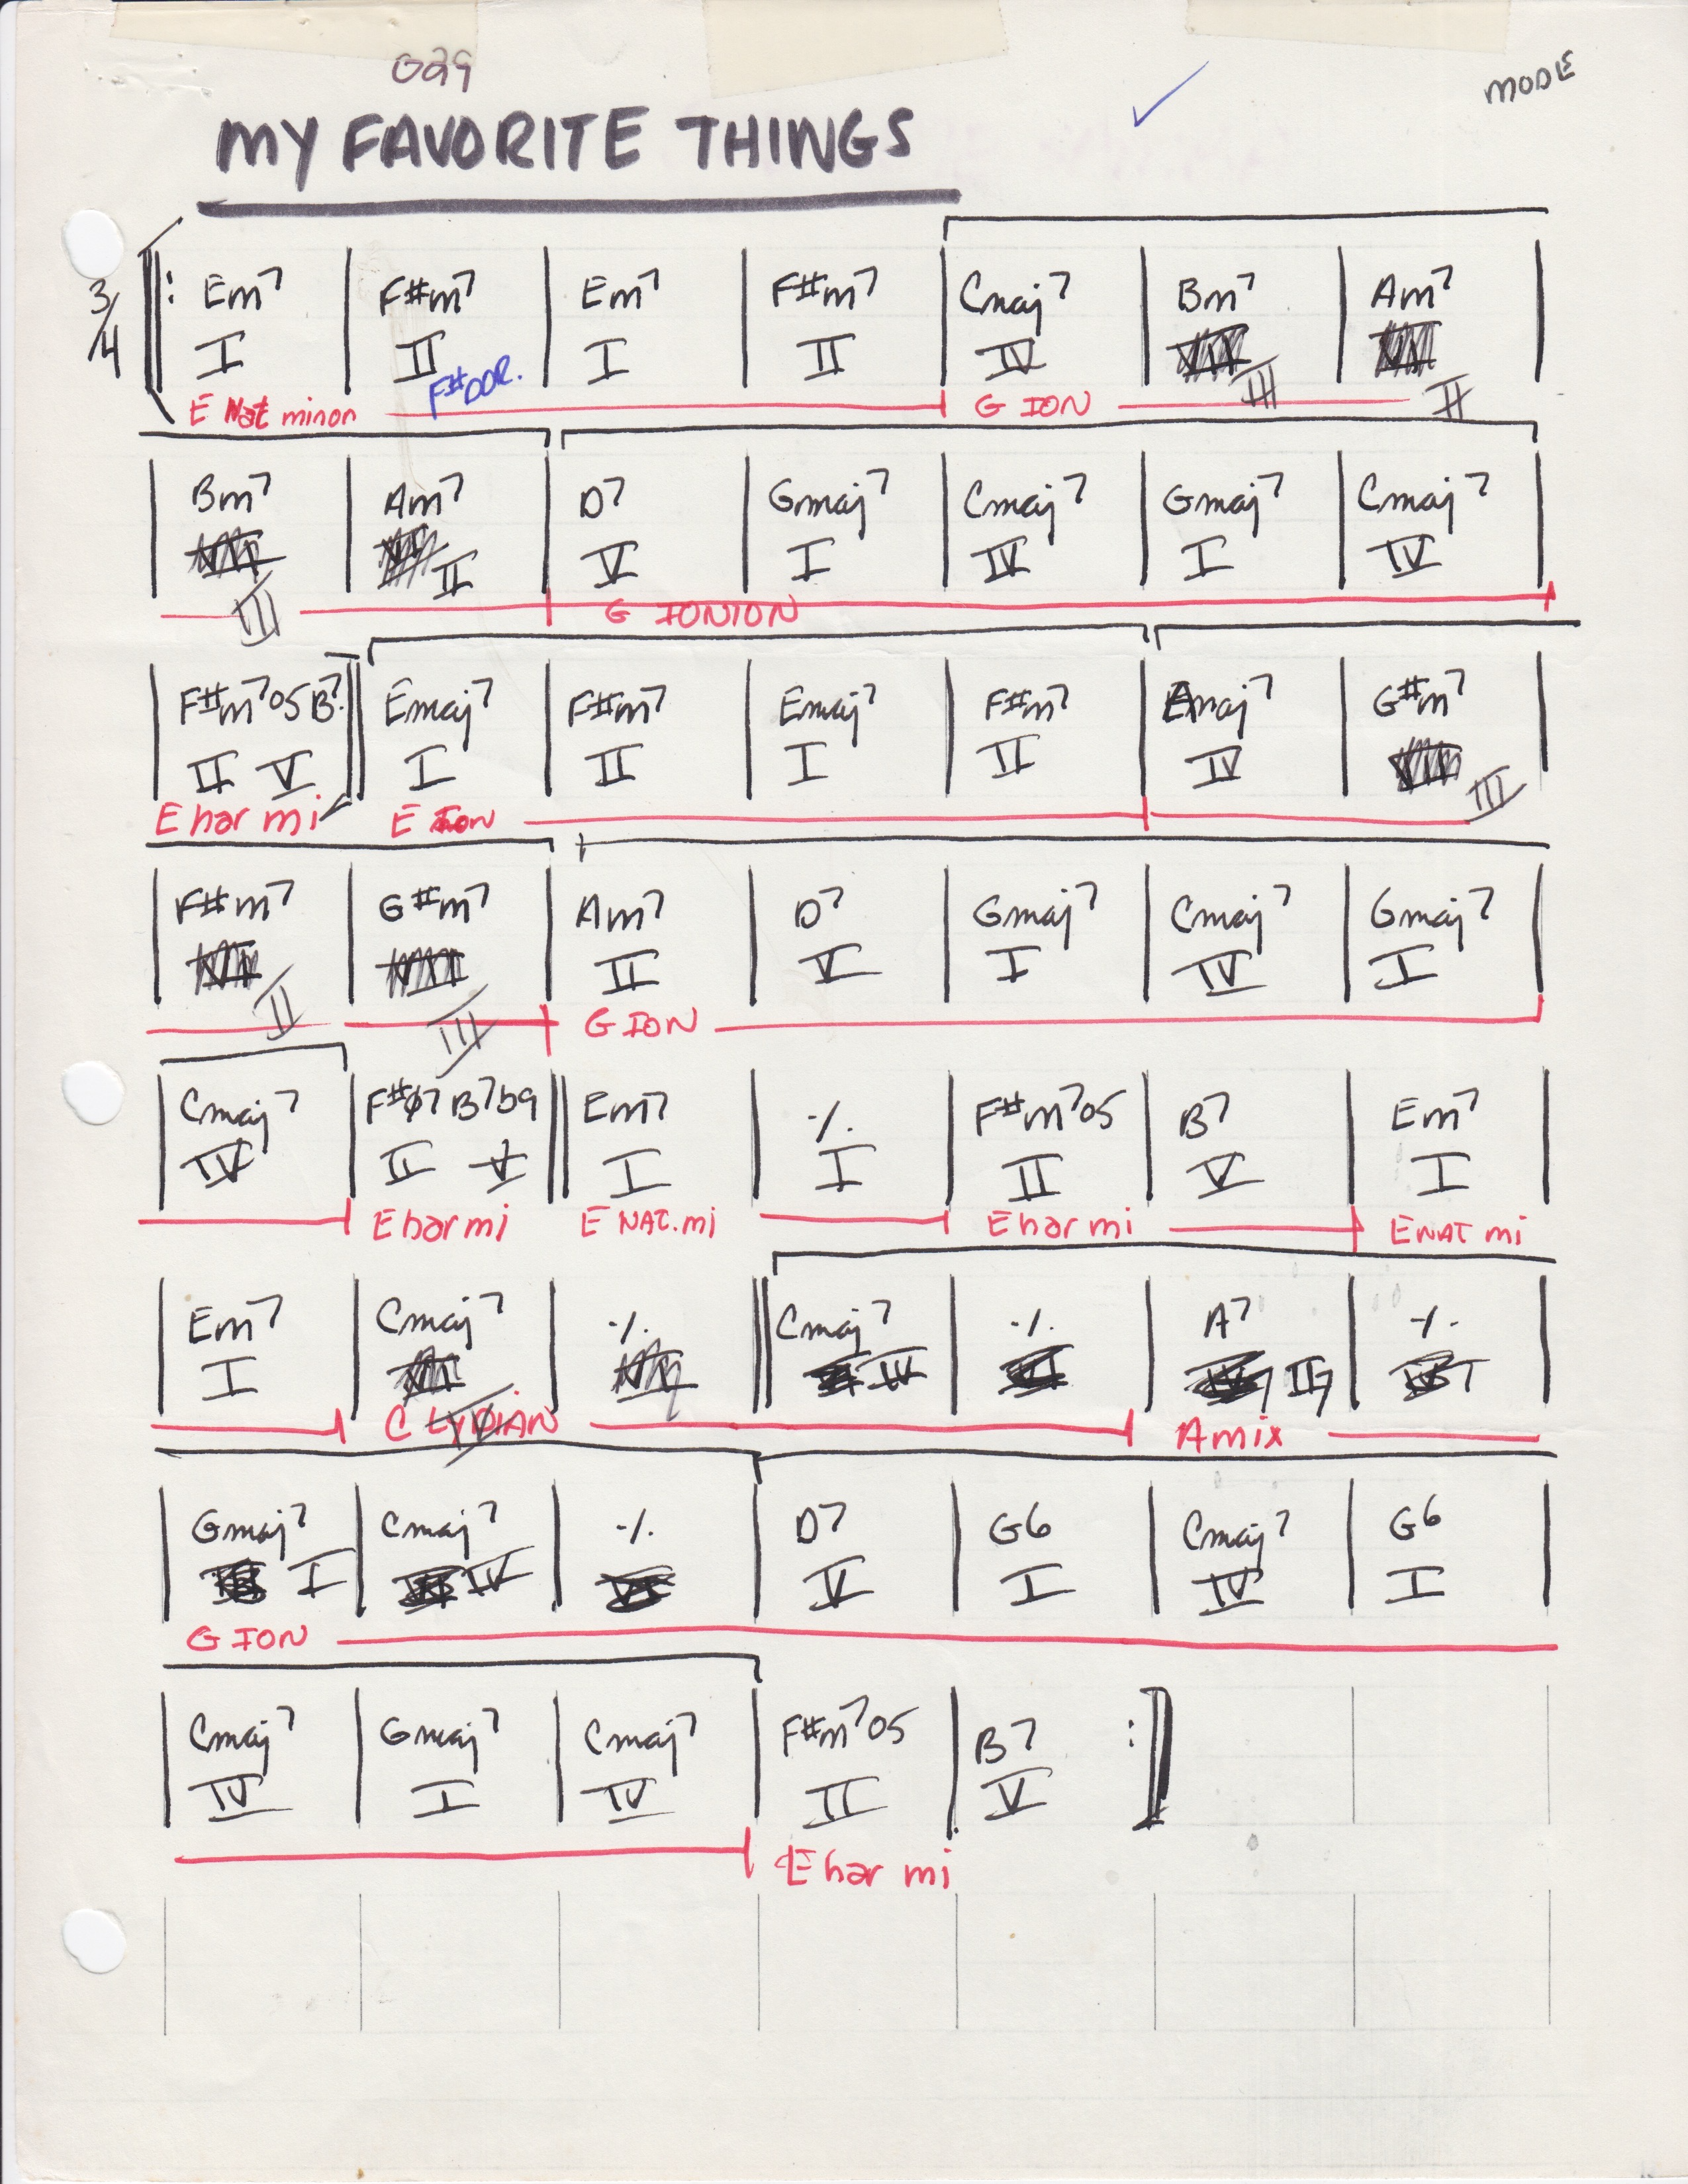 029
MODE
MY FAVORITE THINGS
3/4
Em7 F#m7 Em7 F#m7 Cmaj7 Bm7 Am7
I II I II IV III II
F#DOR.
E Nat minor G ION
Bm7 Am7 D7 Gmaj7 Cmaj7 Gmaj7 Cmaj7
III II V I IV I IV
G IONION
F#m7b5 B7 Emaj7 F#m7 Emaj7 F#m7 Amaj7 G#m7
II V I II I II IV III
E har mi E Ion
F#m7 G#m7 Am7 D7 Gmaj7 Cmaj7 Gmaj7
II III II V I IV I
G ION
Cmaj7 F#ø7 B7b9 Em7 ٪ F#m7b5 B7 Em7
IV II V I I II V I
E har mi E NAT. mi E har mi E NAT mi
Em7 Cmaj7 ٪ Cmaj7 ٪ A7 ٪
I IV IV II7
C LYDIAN A mix
Gmaj7 Cmaj7 ٪ D7 G6 Cmaj7 G6
I IV V I IV I
G ION
Cmaj7 Gmaj7 Cmaj7 F#m7b5 B7
IV I IV II V
E har mi